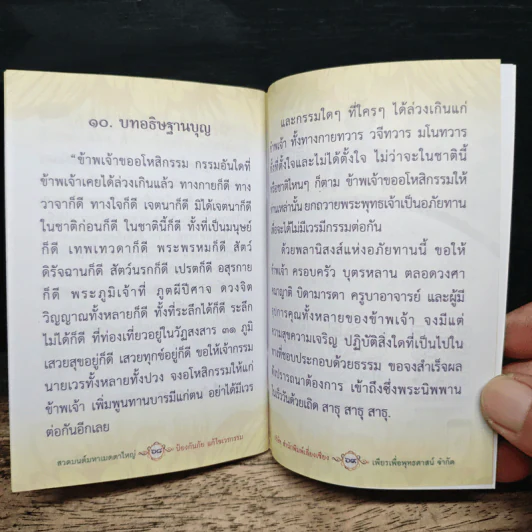 ๑๐. บทอธิษฐานบุญ
“ข้าพเจ้าขออโหสิกรรม กรรมอันใดที่
ข้าพเจ้าเคยได้ล่วงเกินแล้ว ทางกายก็ดี ทาง
วาจาก็ดี ทางใจก็ดี เจตนาก็ดี มิได้เจตนาก็ดี
ในชาติก่อนก็ดี ในชาตินี้ก็ดี ทั้งที่เป็นมนุษย์
ก็ดี เทพเทวดาก็ดี พระพรหมก็ดี สัตว์
ดิรัจฉานก็ดี สัตว์นรกก็ดี เปรตก็ดี อสุรกาย
ก็ดี พระภูมิเจ้าที่ ภูตผีปีศาจ ดวงจิต
วิญญาณทั้งหลายก็ดี ทั้งที่ระลึกได้ก็ดี ระลึก
ไม่ได้ก็ดี ที่ท่องเที่ยวอยู่ในวัฏสงสาร ๓๑ ภูมิ
เสวยสุขอยู่ก็ดี เสวยทุกข์อยู่ก็ดี ขอให้เจ้ากรรม
นายเวรทั้งหลายทั้งปวง จงอโหสิกรรมให้แก่
ข้าพเจ้า เพิ่มพูนทานบารมีแก่ตน อย่าได้มีเวร
ต่อกันอีกเลย
สวดมนต์มหาเมตตาใหญ่ ป้องกันภัย แก้วิบากกรรม
และกรรมใดๆ ที่ใครๆ ได้ล่วงเกินแก่
ข้าพเจ้า ทั้งทางกายทวาร วจีทวาร มโนทวาร
ทั้งที่ตั้งใจและไม่ได้ตั้งใจ ไม่ว่าจะในชาตินี้
หรือชาติไหนๆ ก็ตาม ข้าพเจ้าขออโหสิกรรมให้
ท่านเหล่านั้น ยกถวายพระพุทธเจ้าเป็นอภัยทาน
เพื่อจะได้ไม่มีเวรมีกรรมต่อกัน
ด้วยพลานิสงส์แห่งอภัยทานนี้ ขอให้
ข้าพเจ้า ครอบครัว บุตรหลาน ตลอดวงศา
คณาญาติ บิดามารดา ครูบาอาจารย์ และผู้มี
อุปการคุณทั้งหลายของข้าพเจ้า จงมีแต่
ความสุขความเจริญ ปฏิบัติสิ่งใดที่เป็นไปใน
ทางที่ชอบประกอบด้วยธรรม ขอจงสำเร็จผล
ที่ปรารถนาต้องการ เข้าถึงซึ่งพระนิพพาน
ในเร็ววันด้วยเถิด สาธุ สาธุ สาธุ.
สำนักพิมพ์เลี่ยงเชียง เพียรเพื่อพุทธศาสน์ จำกัด